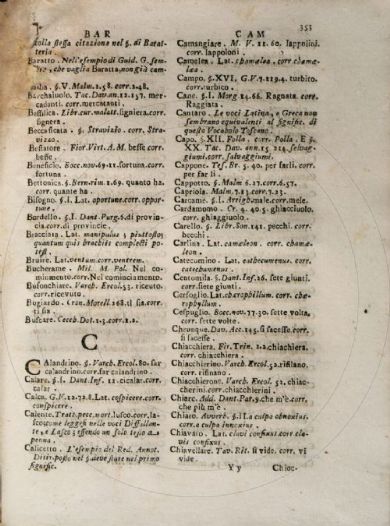 BAR
CAM
353
colla stessa citazione nel §. di Barat-
teria.
Baratto. Nell'esempio di Guid. G. sem-
bra, che vaglia Baratta, non già cam-
V. Malm. 1.58. corr. 2.48.
Barchaiuolo. Tac. Dav. ann. 12.157. mer-
cadanti. corr. mercatanti.
Basilica. Libr. cur. malatt. signiera. corr.
signera.
Beccaficata. §. Stravizio. corr. Stra-
vizzo.
Bestatore. Fior. Virt. A. M. besse corr.
besse.
Beneficio. Bocc. nov. 69.11. fortuna. corr.
fortuna.
Bettonica. §. Bern. rim. 1.69. quanto ha.
corr. quante ha.
Bisogno. §. I. Lat. oportune. corr. oppor-
tune.
Bordello. §. I. Dant. Purg. 6. di provin-
cia. corr. di provincie.
Bracciata. Lat. manipulus; piuttosto,
quantum quis brachiis complecti po-
test.
Bruire. Lat. ventum. corr. ventrem.
Bucherame. Mil. M. Pol. Nel co-
minimento. corr. Nel cominciamento.
Busonchiare. Varch. Ercol. 53. riceuto.
corr. ricevuto.
Bugiardo. Fran. Morell. 268. il sia. corr.
ti sia.
Buscare. Cecch. Dot. 1.3. corr. 1.2.
C
Calandrino. §. Varch. Ercol. 80. far
calandrino. corr. far calandrino.
Calare. §. I. Dant. Inf. 12. cicalar. corr.
calar.
Calca. G. V. 12.72.8. Lat. cospicere. corr.
conspicere.
Calente. Tratt. pecc. mort. lusco. corr. la-
sco come leggesi nelle voci Diffallan-
te, e Lasco; essendo un solo testo a
penna.
Calicetto. L'esempio del Red. Annot.
Ditir. posto nel §. deve stare nel primo
figurese.
Camsangiare. M. V. 11.60. lappolini.
corr. lappoloni.
Camelea. Lat. chamalea. corr. chamæ-
læa.
Campo. §. XVI. G. V. 7.119.4. turbito.
corr. turbito.
Cane. §. I. Morg. 24.66. Ragnata. corr.
Raggiata.
Cantaro. Le voci Latina, e Greca non
sembrano equivalenti al signific. di
questo Vocabolo Toscano.
Capo. §. XII. Polla. corr. Polla. E §.
XX. Tac. Dav. ann. 15.214. salvag-
giumi. corr. salvaggiumi.
Cappone. Tes. Br. 5.40. per farli. corr.
per far li.
Cappotto. §. Malm. 6.27. corr. 6.57.
Capriola. Malm. 7.13. corr. 7.23.
Carcame. §. I. Arrigh. male. corr. mele.
Cardamomo. Cr. 4.40.5. ghiacciuolo.
corr. ghiaggiuolo.
Carello. §. Libr. Son. 141. pecchi. corr.
becchi.
Carlina. Lat. cameleon. corr. chama-
leon.
Catecumino. Lat. cathecumenus. corr.
catechumenus.
Centomila. §. Dant. Inf. 26. sete giunti.
corr. siete giunti.
Cerfoglio. Lat. charophillum. corr. chæ-
rephyllum.
Cespuglio. Bocc. nov. 77.30. sette volta.
corr. sette volte.
Chiunque. Dav. Acc. 145. si facesso. corr.
si facesse.
Chiacchiera. Fir. Trin. 2.2. chiacchiera.
corr. chiacchiera.
Chiacchierino. Varch. Ercol. 52. rifilano.
corr. rifinano.
Chiacchierone. Varch. Ercol. 52. chiac-
cherini. corr. chiacchierini.
Chiaro. Add. Dant. Par. 9. che m'è. corr.
che più m'è.
Chiaro. Avverb. §. I. La culpa obnoxius.
corr. a culpa innoxius.
Chiavato. Lat. clavi confixus. corr. cla-
vis confixus.
Chiavellare. Tav. Rit. si vido. corr. vi
vide.
Yy
Chioc-